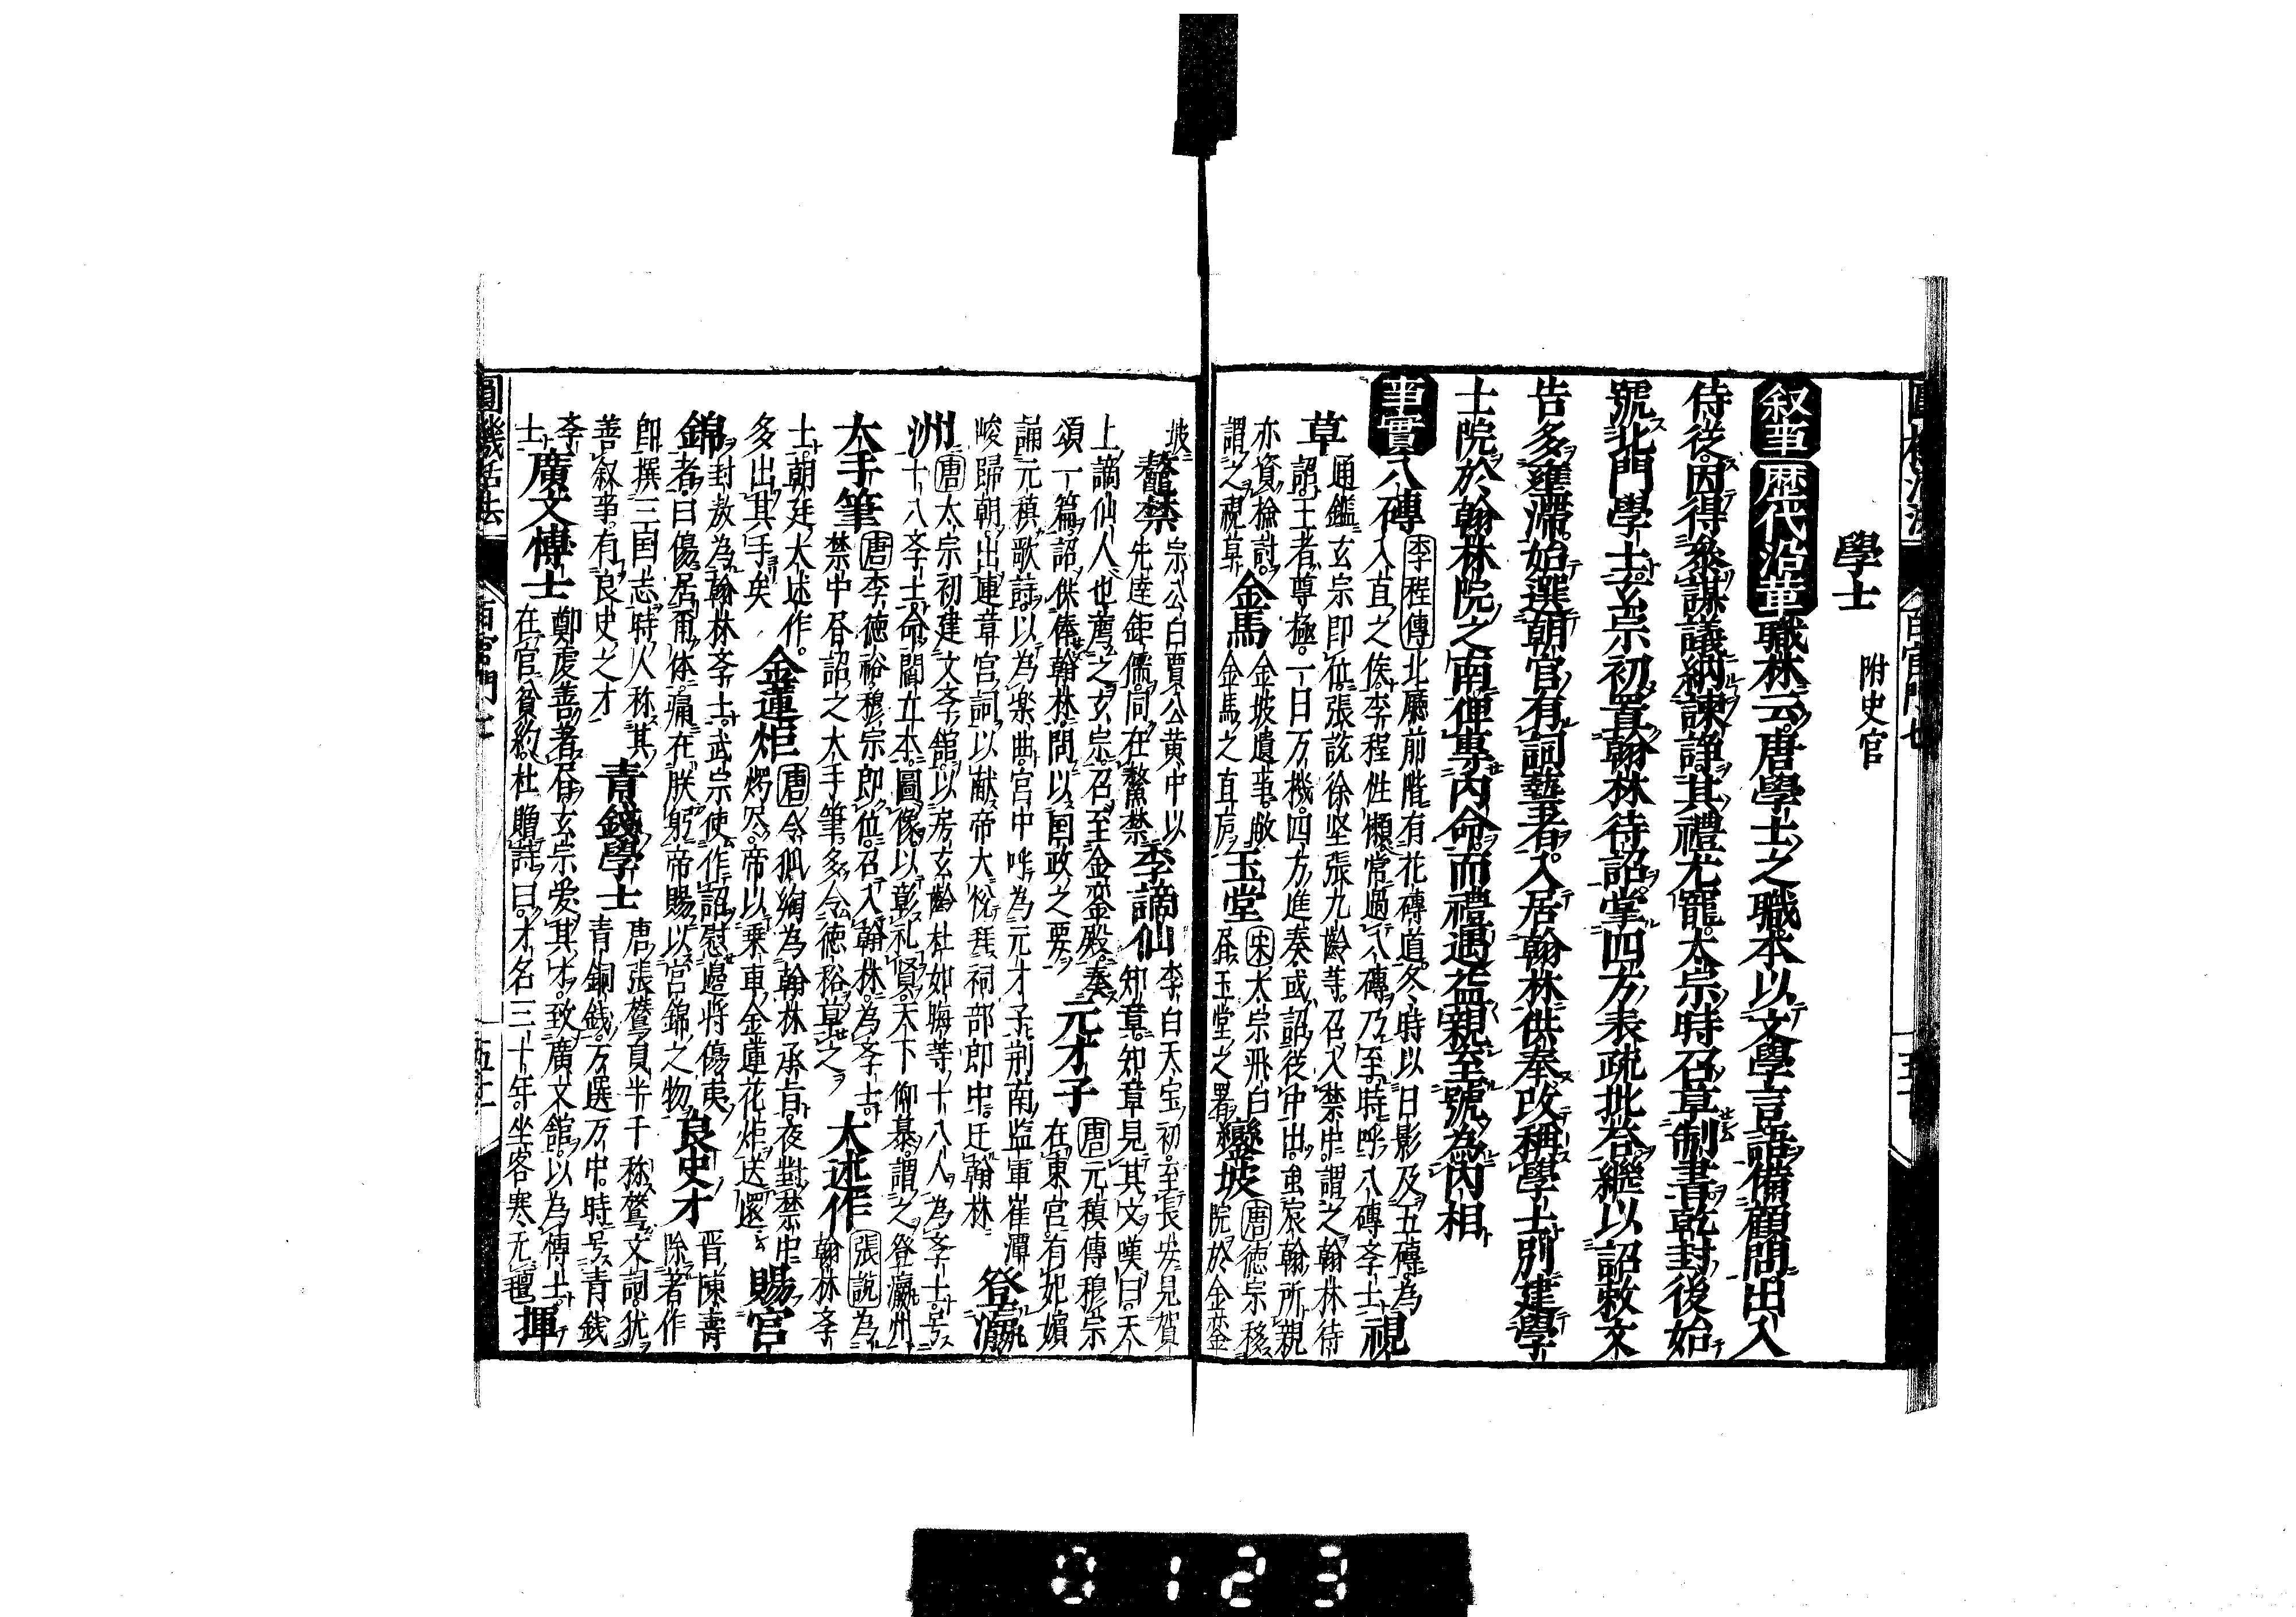 學士 附史官
叙事 歴代沿革 職林云唐學士之職本以文學言語備顧問出入
侍從因得參謀議納諫諍其禮尤寵太宗時召草制書乾封後始
號北門學士玄宗初置翰林待詔掌四方表疏批荅繼以詔敕文
告多壅滯始選朝官有詞藝者入居翰林供奉改稱學士別建學
士院於翰林院之南俾專內命而禮遇益親至號為內相
事實 八磚 李程傳 北廳前階有花磚道冬時以日影及五磚為
入直之侯李程性懶常過八磚乃至時呼八磚斈士 視
草 通鑑玄宗即位張說徐坚張九齡等召入禁中謂之翰林待
詔王者尊極一日万機四方進奏或詔從中出虽宸翰所親
亦資檢討
謂之視草 金馬 金坡遺事啟
金馬之直房 玉堂 宋太宗飛白
居玉堂之署 鑾坡 唐德宗移
院於金鑾
坡 鼇禁 宗公白賈公黄中以
先達鉅儒同在鰲禁 李謫仙 李白天宝初至長安見賀
知章知章見其文嘆曰天
上謫仙人也薦之玄宗召至金鑾殿奏
頌一篇詔供俸翰林問以国政之要 元才子 唐元稹傳穆宗
在東宮有妃嬪
誦元稹歌詩以為楽曲宮中呼為元才子荆南監軍崔潭
峻歸朝出連章宮詞以献帝大悅拜祠部郎中迁翰林 登瀛
洲 唐太宗初建文斈館以房玄齡杜如晦等十八人為斈士号
十八斈士命閻立本圖像以彰礼贤天下仰慕謂之登瀛州
大手筆 唐李德裕穆宗即位召入翰林為斈士
禁中屠詔之大手筆多令德裕草之 大述作 張說為
翰林斈
士朝廷大述作
多出其手矣 金蓮炬 唐令狐綯為翰林承旨夜對禁中
燭尽帝以乘車金蓮花炬送還 賜宮
錦 封敖為翰林斈士武宗使作詔慰邊將傷夷
者曰傷居爾体痛在朕躬帝賜以宮錦之物 良史才 晋陳壽
除著作
郎撰三国志時人称其
善叙事有良史之才 青錢學士 唐張鷟員半千称鷟文詞犹
青銅銭万選万中時号青銭
斈
士 廣文博士 鄭虔善著書玄宗愛其才致廣文館以為博士
在官貧約杜贈詩曰才名三十年坐客寒无氊 揮
圓機活法 百官門七